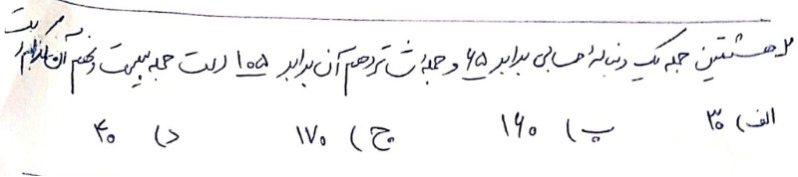 هشتمین جمله یک دنباله حسابی برابر ۶۵ و جمله شانزدهم آن برابر ۱۰۵ است جمله بیست و پنجم آن کدام است
الف) ۳۰ ب) ۱۶۰ ج) ۱۷۰ د) ۴۰